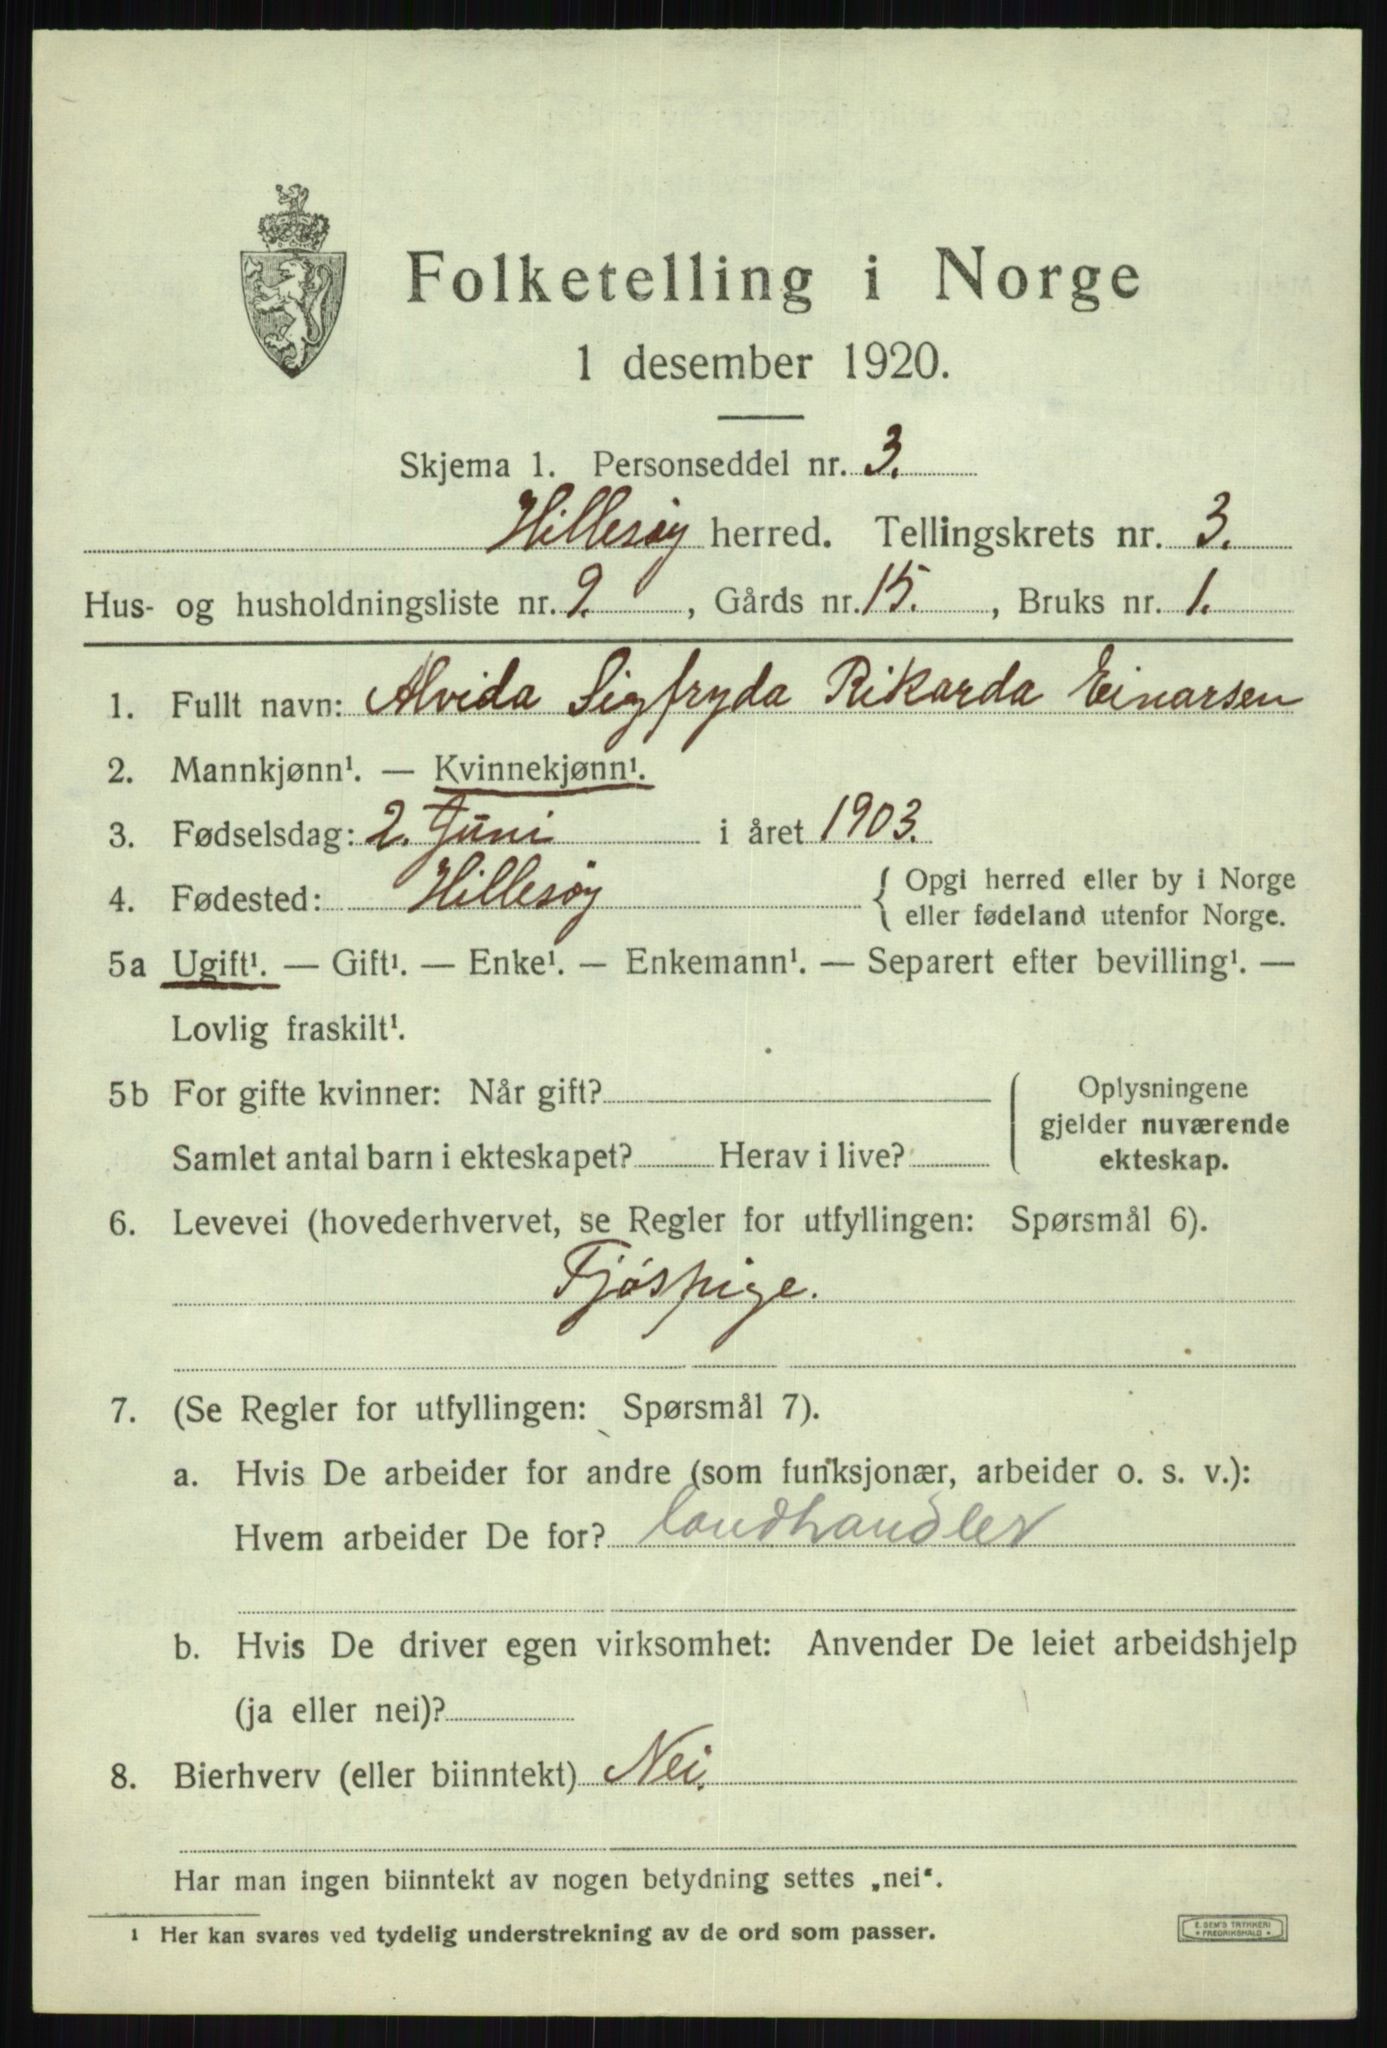 Folketelling i Norge
1 desember 1920.
Skjema 1. Personseddel nr. 3.
Hillesøy herred. Tellingskrets nr. 3.
Hus- og husholdningsliste nr. 9. , Gårds nr. 15. , Bruks nr. 1.
1. Fullt navn: Alvida Sigfryda Rikarda Einarsen
2. Mannkjønn¹. — Kvinnekjønn¹.
3. Fødselsdag: 2. Juni i året 1903.
4. Fødested: Hillesøy { Opgi herred eller by i Norge
eller fødeland utenfor Norge.
5a Ugift¹. — Gift¹. — Enke¹. — Enkemann¹. — Separert efter bevilling¹. —
Lovlig fraskilt¹.
5b For gifte kvinner: Når gift? Oplysningene
gjelder nuværende
Samlet antal barn i ekteskapet? Herav i live? ekteskap.
6. Levevei (hovederhvervet, se Regler for utfyllingen: Spørsmål 6).
Fjøspige.
7. (Se Regler for utfyllingen: Spørsmål 7).
a. Hvis De arbeider for andre (som funksjonær, arbeider o. s. v.):
Hvem arbeider De for? landhandler
b. Hvis De driver egen virksomhet: Anvender De leiet arbeidshjelp
(ja eller nei)?
8. Bierhverv (eller biinntekt) Nei.
Har man ingen biinntekt av nogen betydning settes „nei“.
1 Her kan svares ved tydelig understrekning av de ord som passer.
E. SEM'S TRYKKERI
FREDRIKSHALD